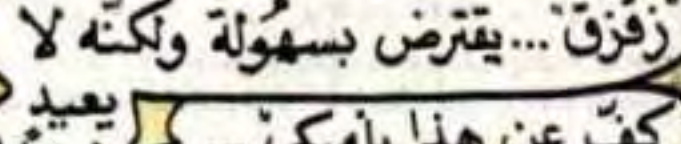 زقزق"... يقترض بسهُولة ولكنّه لا
يعيد
كفّ عن هذا يا